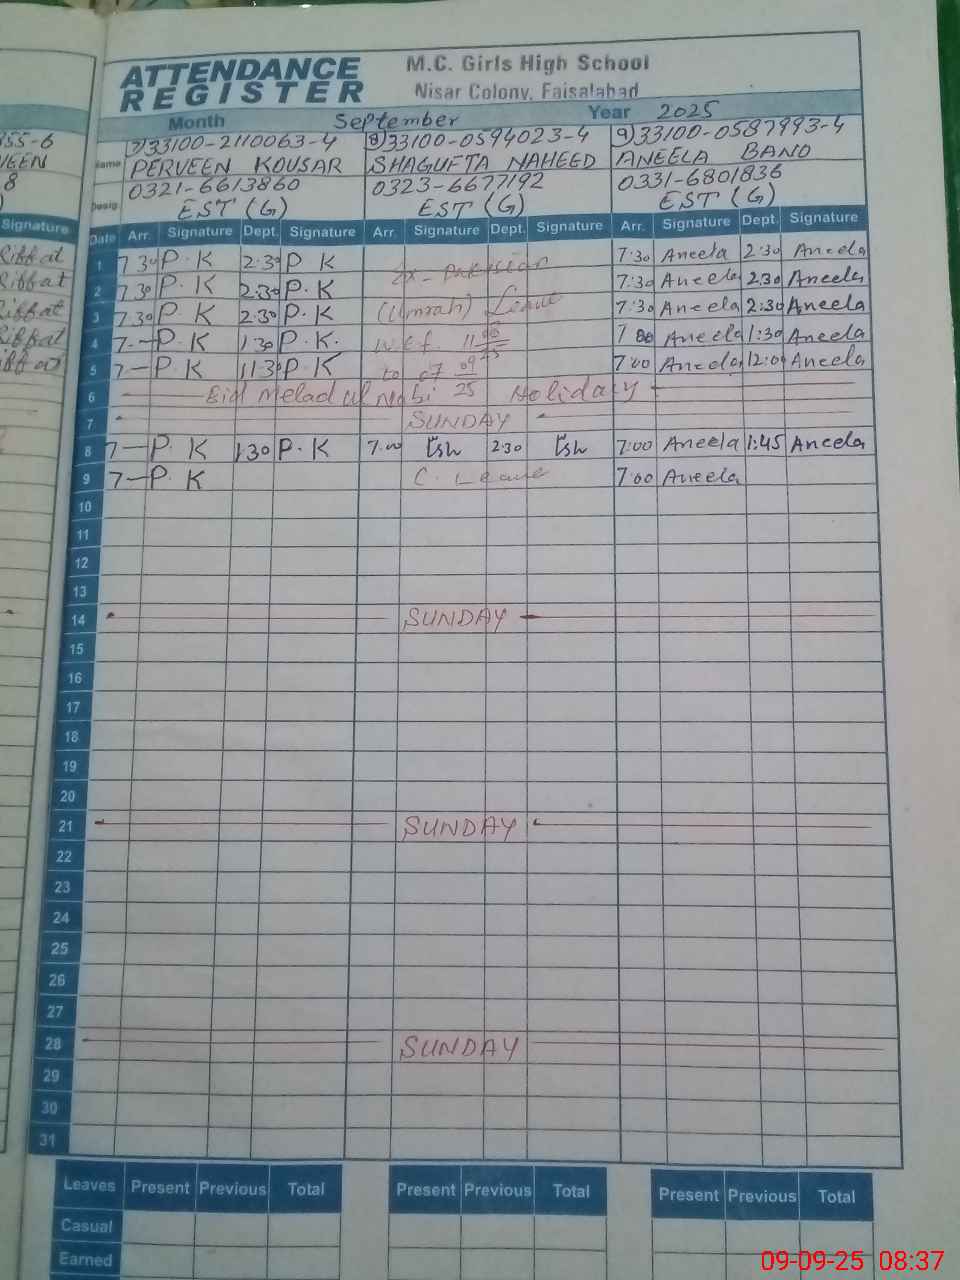 ATTENDANCE REGISTER
M.C. Girls High School
Nisar Colony, Faisalabad
Month September Year 2025
355-6
8
Signature
Riffat
Riffat
Riffat
Riffat
Name
7)33100-2110063-4 8)33100-0594023-4 9)33100-0587993-4
PERVEEN KOUSAR SHAGUFTA NAHEED ANEELA BANO
0321-6613860 0323-6677192 0331-6801836
Desig. EST (G) EST (G) EST (G)
Date Arr. Signature Dept. Signature Arr. Signature Dept. Signature Arr. Signature Dept. Signature
1 7 30 P. K 2.30 P K Ex-Pakistan 7:30 Aneela 2:30 Aneela
2 7.30 P. K 2.30 P. K 7:30 Aneela 2.30 Aneela
3 7.30 P. K 2.30 P. K (Umrah) Leave 7:30 Aneela 2:30 Aneela
4 7-- P. K 1.30 P. K. w.e.f. 11 7 00 Aneela 1:30 Aneela
5 7- P. K 11.30 P. K to 07 09/25 7:00 Aneela 12:00 Aneela
6 Eid Melad ul Nabi Holiday
7 SUNDAY
8 7- P. K 1.30 P. K 7.00 2:30 7:00 Aneela 1:45 Aneela
9 7- P. K C. Leave 7:00 Aneela
10
11
12
13
14 SUNDAY
15
16
17
18
19
20
21 SUNDAY
22
23
24
25
26
27
28 SUNDAY
29
30
31
Leaves Present Previous Total Present Previous Total Present Previous Total
Casual
Earned
09-09-25 08:37